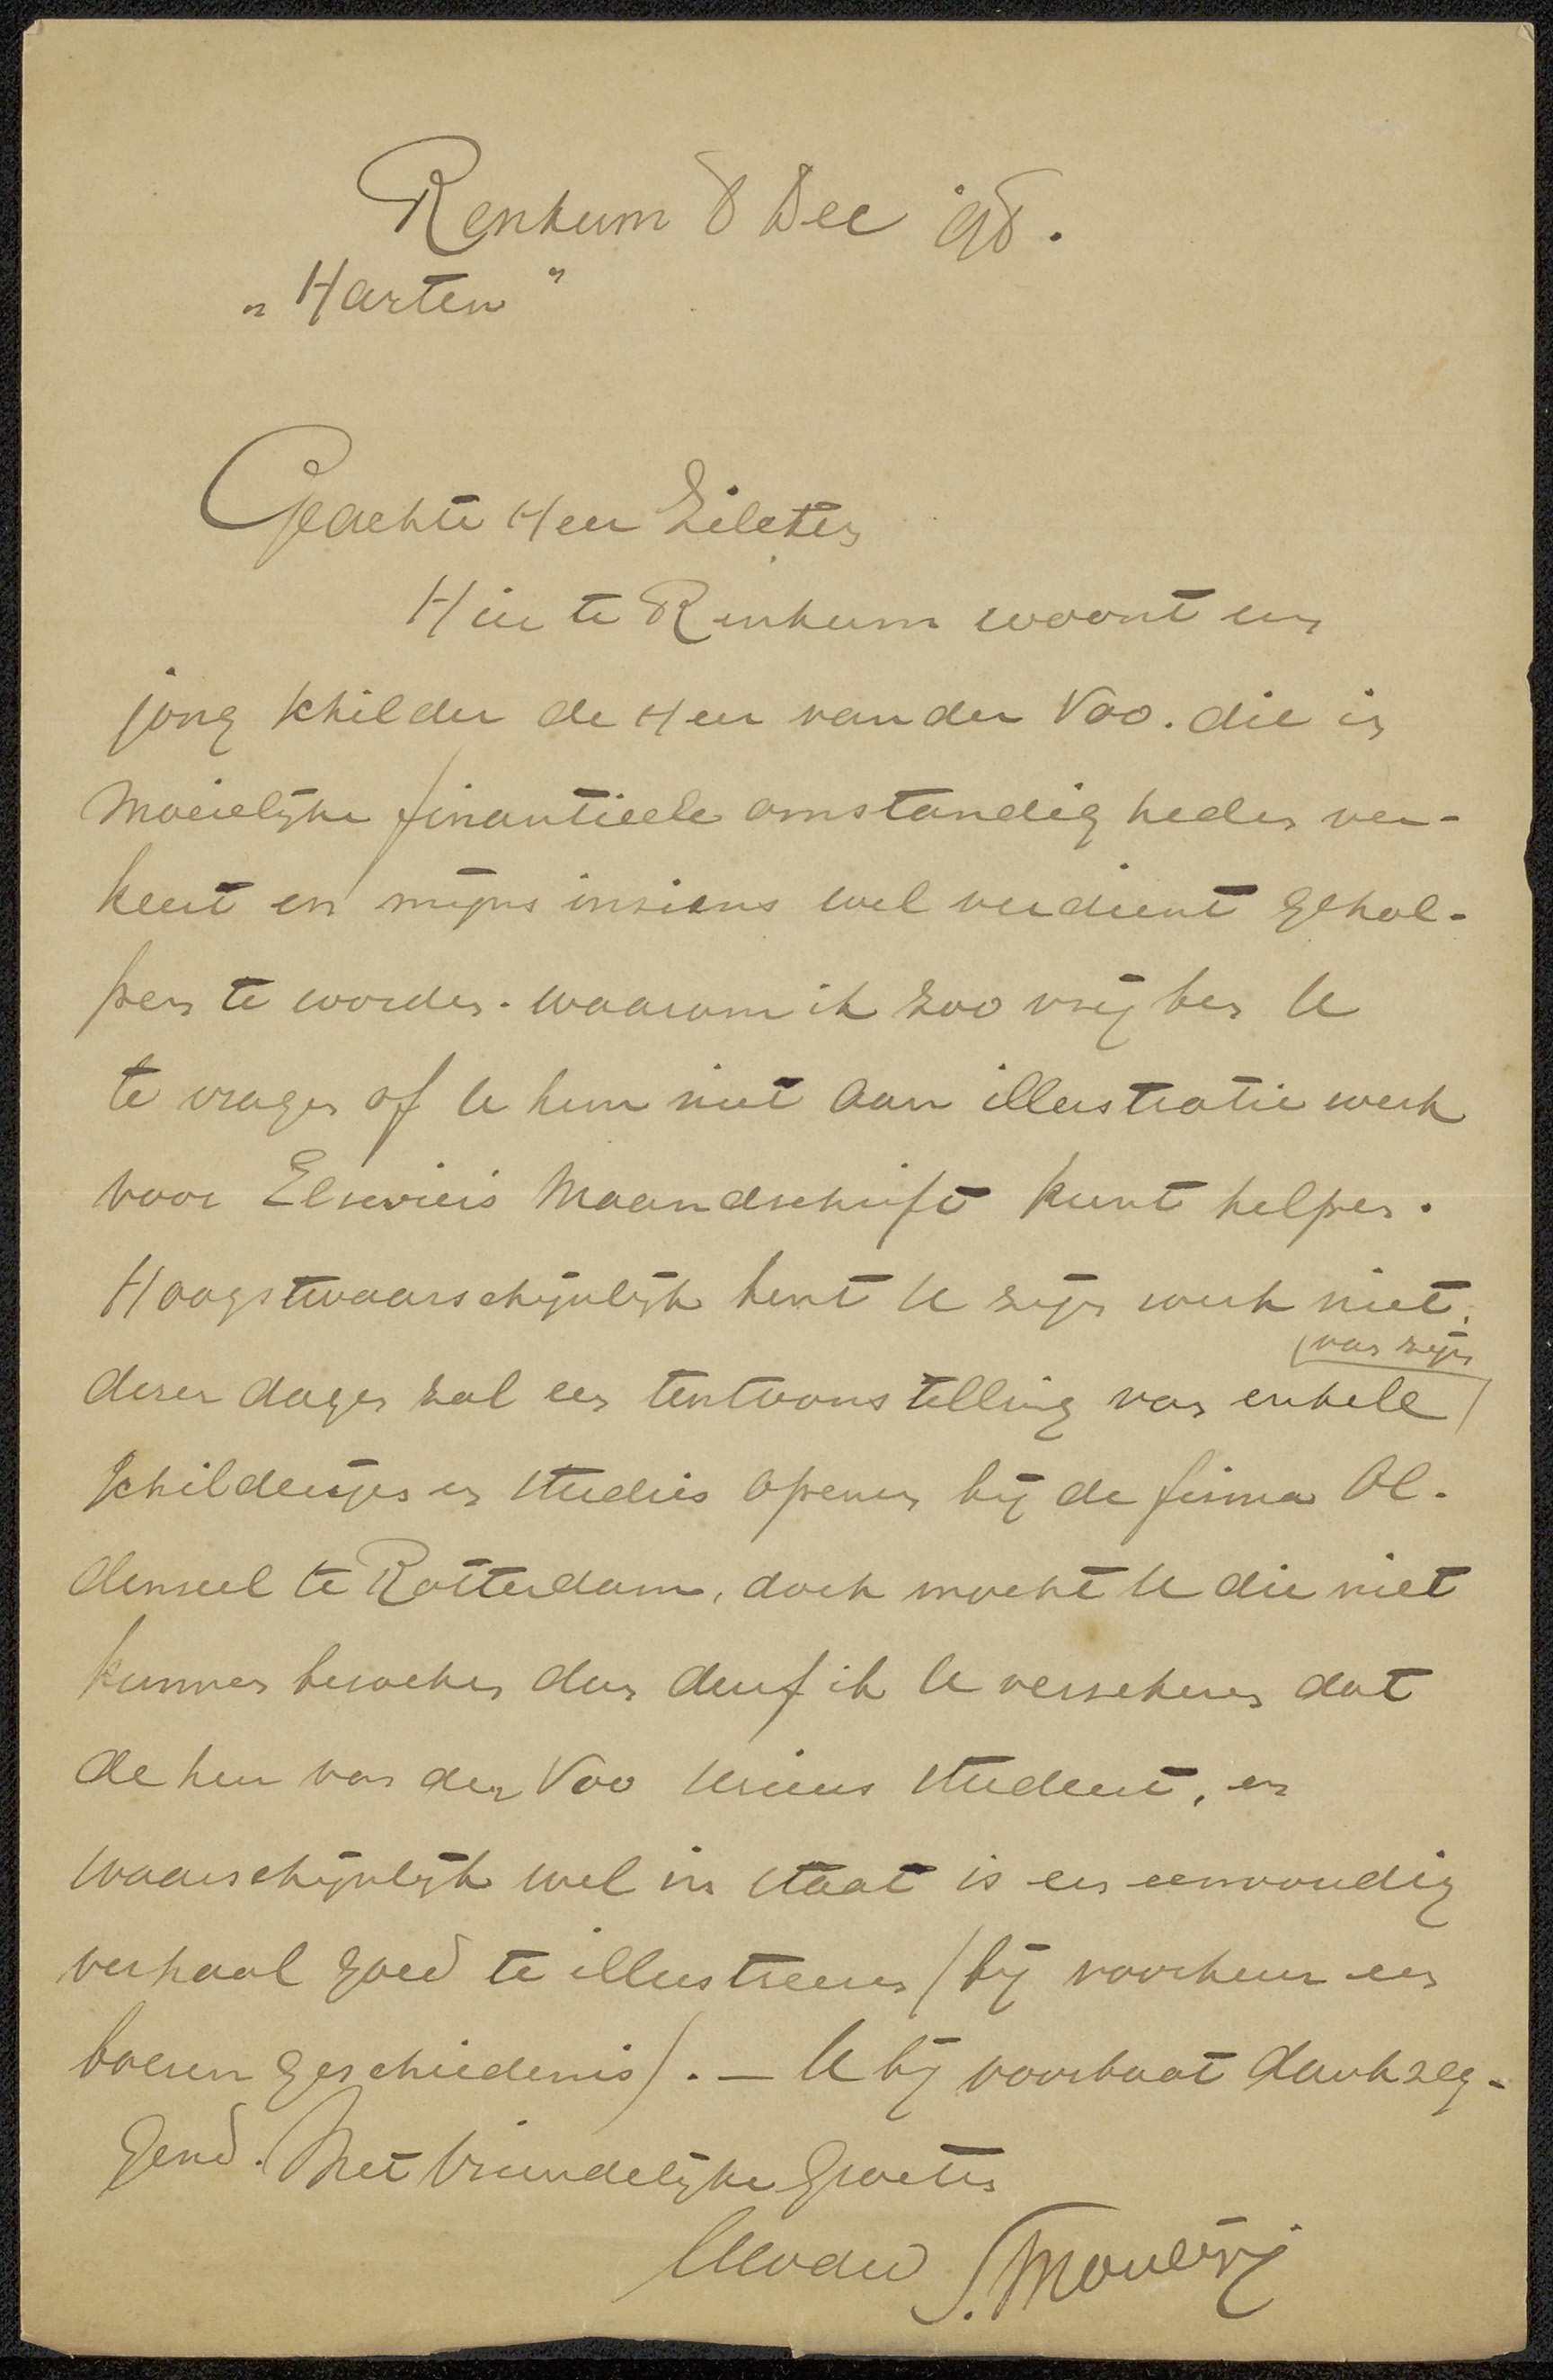 Renkum 8 Dec '98.
„Harten"
Geachte Heer Zilcken
Hier te Renkum woont een
jong schilder de Heer van der Voo. die in
moeielijke finantieele omstandigheden ver-
keert en mijns inziens wel verdient gehol-
pen te worden. waarom ik zoo vrij ben U
te vragen of U hem niet aan illustratie werk
voor Elseviers Maandschrift kunt helpen.
Hoogstwaarschijnlijk kent U zijn werk niet,
(van zijn
dezer dagen zal een tentoonstelling van enkele /
schilderijen en studies openen bij de firma Ol-
denzeel te Rotterdam, doch mocht U die niet
kunnen bezoeken dan durf ik U verzekeren dat
de heer van der Voo serieus studeert, en
waarschijnlijk wel in staat is een eenvoudig
verhaal goed te illustreeren (bij voorkeur een
boeren geschiedenis). — U bij voorbaat dankzeg-
gend. Met Vriendelijke Groeten
Uwdw S. Moulijn